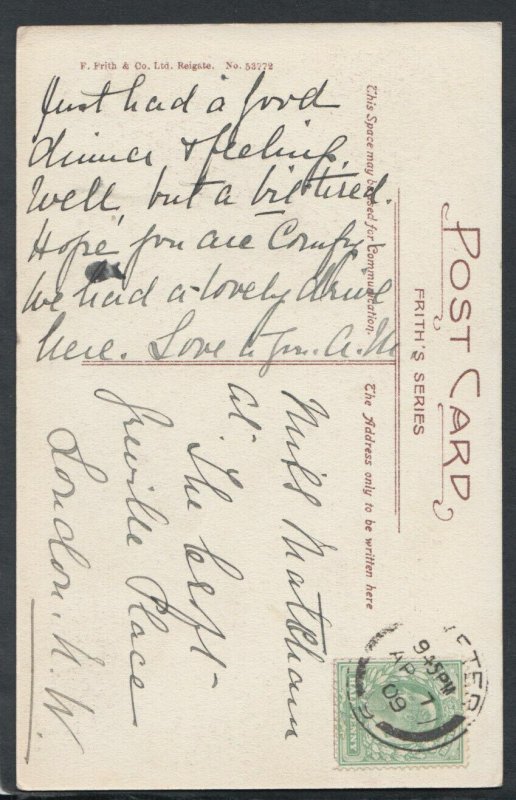 F. Frith & Co. Ltd. Reigate. No. 53772
Just had a good
dinner & feeling
well, but a bit tired.
Hope you are Comfy
We had a lovely drive
here. Love to you. A.M
This Space may be used for Communication.
POST CARD
FRITH'S SERIES
The Address only to be written here
Miss Matcham
at The Croft
Greville Place
London. N.W.
9.45PM
AP 7
09